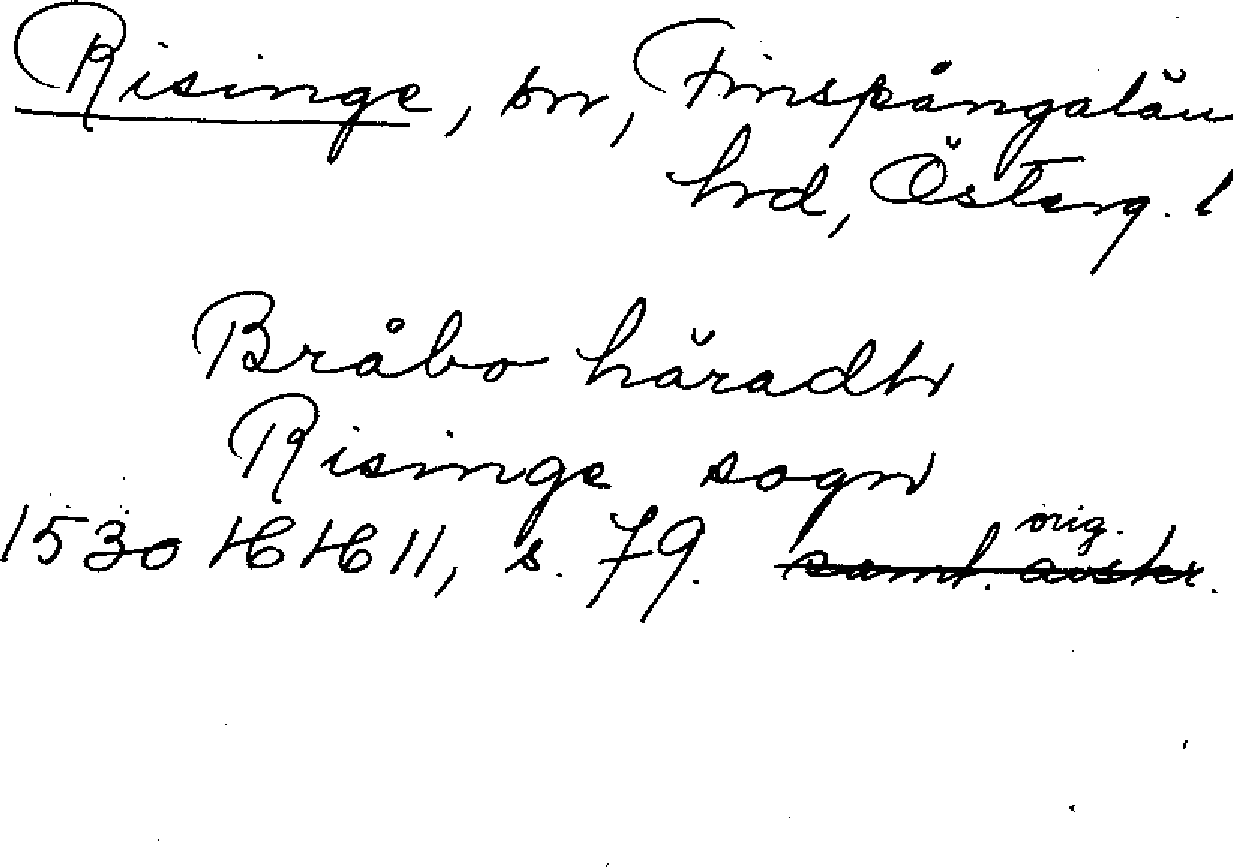 Risinge, sn, Finspångalän
hrd, Österg. l
Bråbo häradh
Risinge sogn
orig.
1530 HH 11, s. 79. samt. avskr.